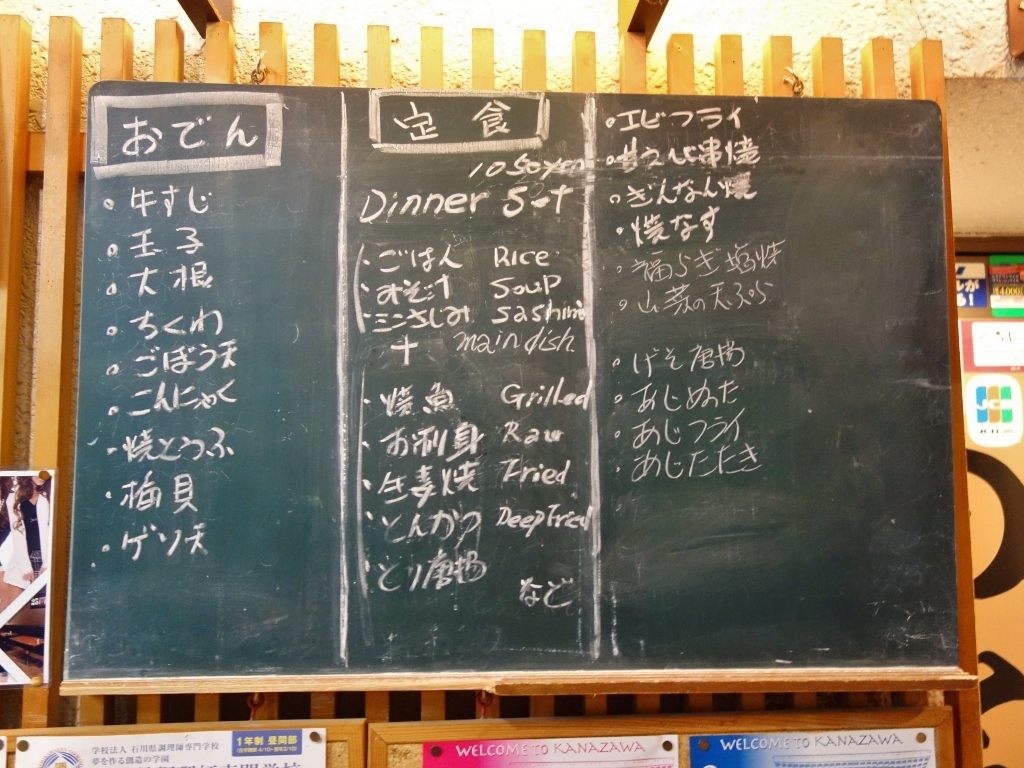 おでん
・牛すじ
・玉子
・大根
・ちくわ
・ごぼう天
・こんにゃく
・焼とうふ
・梅貝
・ゲソ天
定食
1050yen
Dinner Set
・ごはん Rice
・みそ汁 Soup
・ミニさしみ Sashimi
＋ main dish.
・焼魚 Grilled
・お刺身 Raw
・生姜焼 Fried
・とんかつ Deep Fried
・とり唐揚
など
・エビフライ
・ぎんなん焼
・焼なす
・山菜の天ぷら
・げそ唐揚
・あじぬた
・あじフライ
・あじたたき
学校法人 石川県調理師専門学校
夢を作る創造の学園
1年制 昼間部
WELCOME TO KANAZAWA
WELCOME TO KANAZAWA
JCB